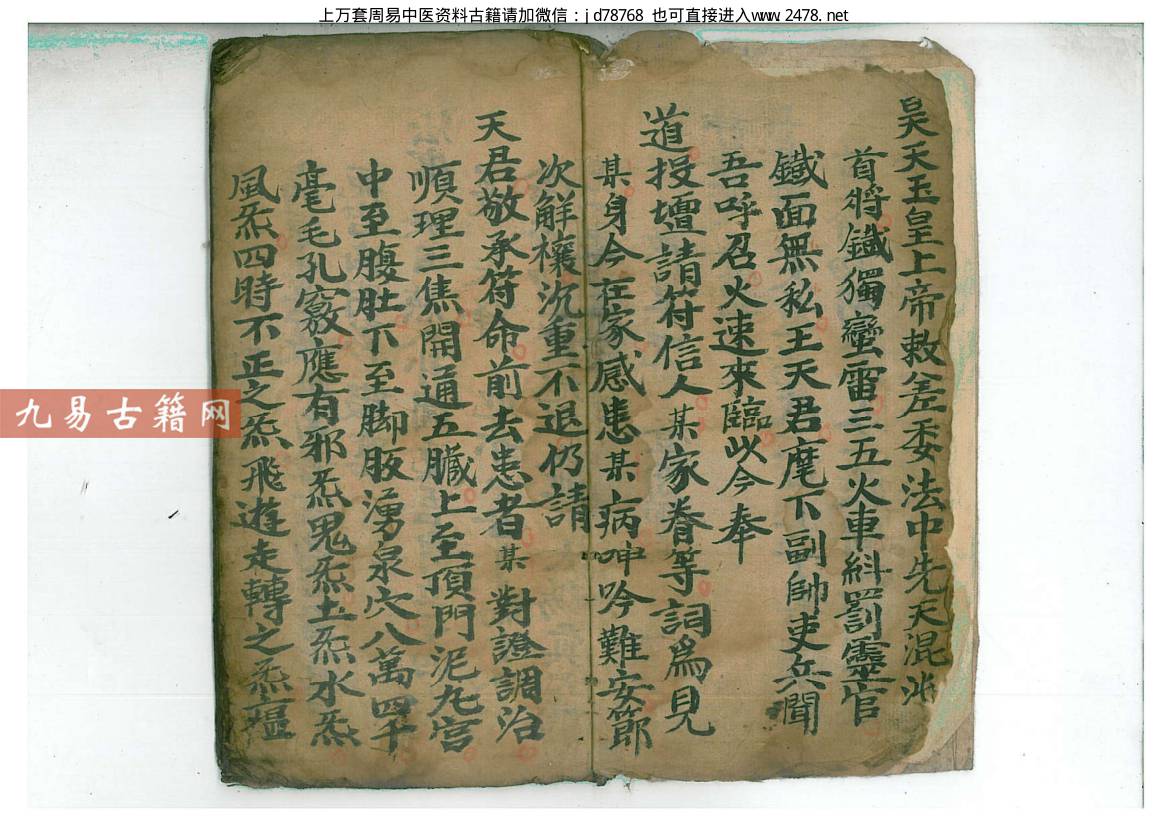 上万套周易中医资料古籍请加微信：jd78768 也可直接进入www.2478.net
昊天玉皇上帝敕差委法中先天混
首將鐵獨蠻雷三五火車糾罰靈官
鐵面無私王天君麾下副帥吏兵聞
吾呼召火速來臨以今奉
道投壇請符信人某家眷等詞爲見
某身今在家感患某病呻吟難安節
次觧禳沉重不退仍請
天君敬承符命前去患者某對證調治
順理三焦開通五臟上至頂門泥九宮
中至腹肚下至脚版湧泉穴八萬四千
毫毛孔竅應有邪炁鬼炁土炁水炁
風炁四時不正之炁飛遊走轉之炁瘟
九易古籍网